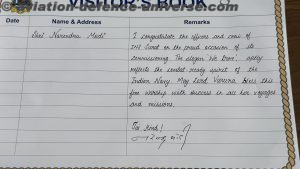 VISITOR'S BOOK
Date
Name & Address
Remarks
Shri Narendra Modi
I congratulate the officers and crew of
INS Surat on the proud occasion of its
commissioning. The slogan 'We Dare', aptly
reflects the combat ready spirit of the
Indian Navy. May Lord Varuna bless this
fine warship with success in all her voyages
and missions.
Jai Hind!